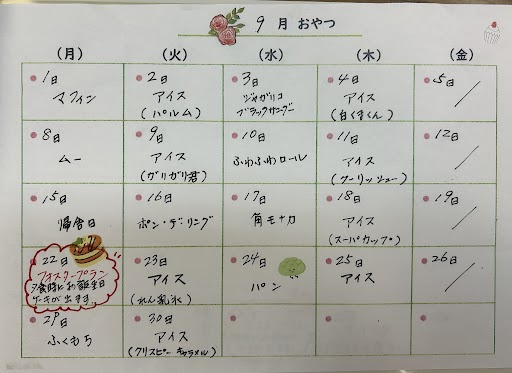 9月 おやつ
(月) (火) (水) (木) (金)
1日 2日 3日 4日 5日
マフィン アイス ジャガリコ アイス
(パルム) ブラックサンダー (白くまくん)
8日 9日 10日 11日 12日
ムー アイス ふわふわロール アイス
(ガリガリ君) (クーリッシュ)
15日 16日 17日 18日 19日
帰舎日 ポン・デ・リング 角モナカ アイス
(スーパーカップ)
22日 23日 24日 25日 26日
フォスタープラン アイス パン アイス
夕食時にお誕生日 (れん乳氷)
ケーキが出ます。
29日 30日
ふくもち アイス
(クリスピーキャラメル)